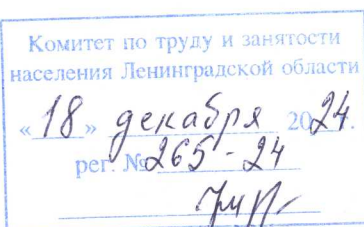 Комитет по труду и занятости
населения Ленинградской области
«18» декабря 2024.
рег. № 265-24